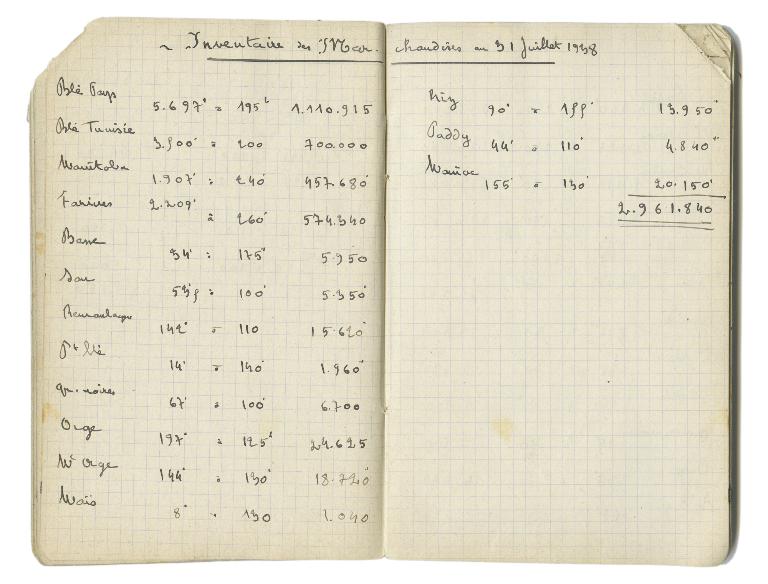 ~ Inventaire des Mar-
Blé Pays
5.697 à 195 1.110.915
Blé Tunisie
3.500 à 200 700.000
Manitoba
1.907 à 240 457.680
Farines
2.209
à 260 574.340
Basse
34 à 175 5.950
Son
53,5 à 100 5.350
Remoulages
142 à 110 15.620
Pt blé
14 à 140 1.960
gr. noires
67 à 100 6.700
Orge
197 à 125 24.625
Orge
144 à 130 18.720
Maïs
8 à 130 1.040
chandises au 31 Juillet 1938
Riz
90 à 155 13.950
Paddy
44 à 110 4.840
Manioc
155 à 130 20.150
2.961.840